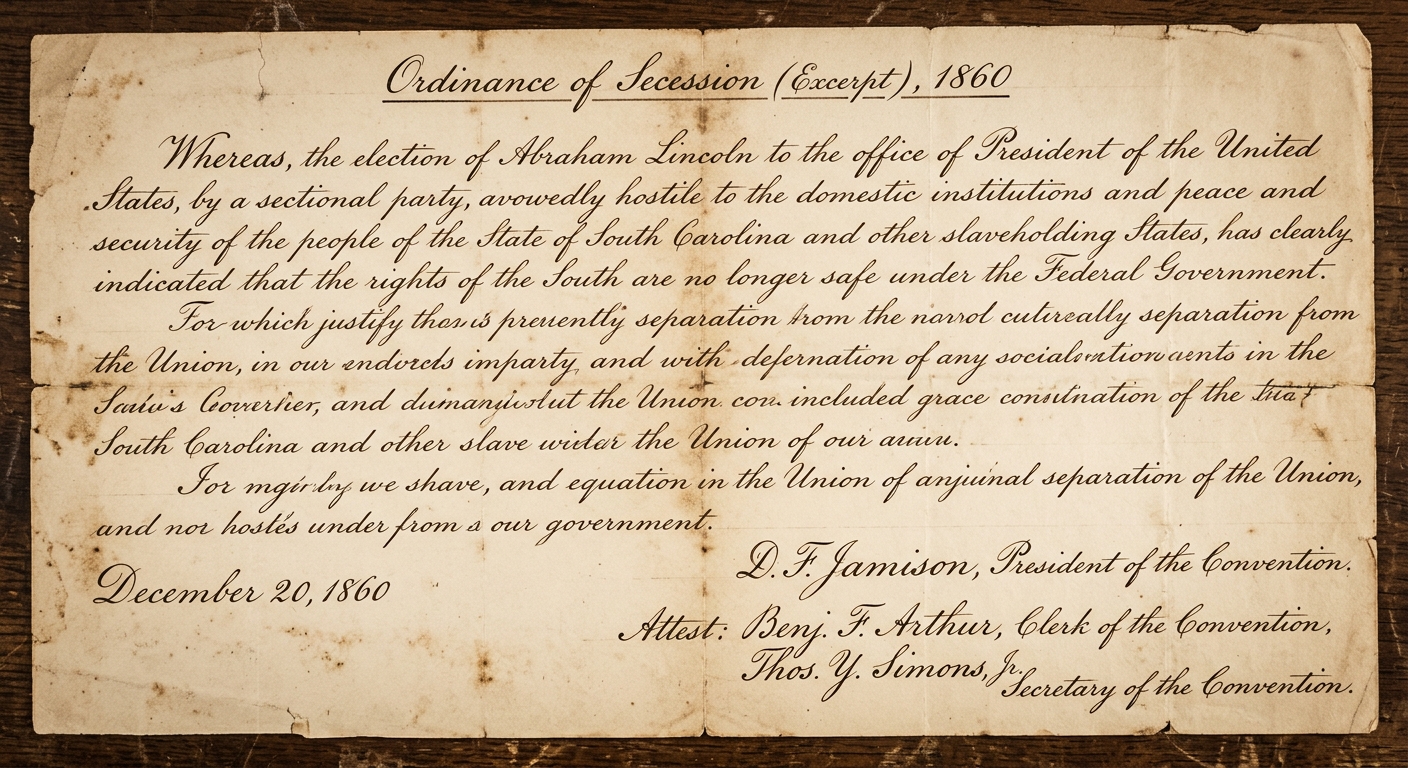 Ordinance of Secession (Excerpt), 1860
Whereas, the election of Abraham Lincoln to the office of President of the United
States, by a sectional party, avowedly hostile to the domestic institutions and peace and
security of the people of the State of South Carolina and other slaveholding States, has clearly
indicated that the rights of the South are no longer safe under the Federal Government.
For which justify separation from the separation from
the Union, in our imparty, and with defernation of any in the
and the Union included grace of the
South Carolina and other slave the Union of our
For we shave, and equation in the Union of separation of the Union,
and nor under from our government.
December 20, 1860
D. F. Jamison, President of the Convention.
Attest: Benj. F. Arthur, Clerk of the Convention,
Thos. Y. Simons, Jr.
Secretary of the Convention.